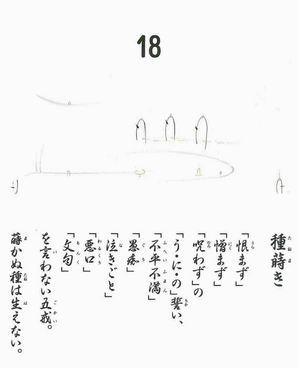 18
種蒔き
「恨まず」
「憎まず」
「呪わず」の
「う・に・の」誓い、
「不平不満」
「愚痴」
「泣きごと」
「悪口」
「文句」
を言わない五戒。
蒔かぬ種は生えない。